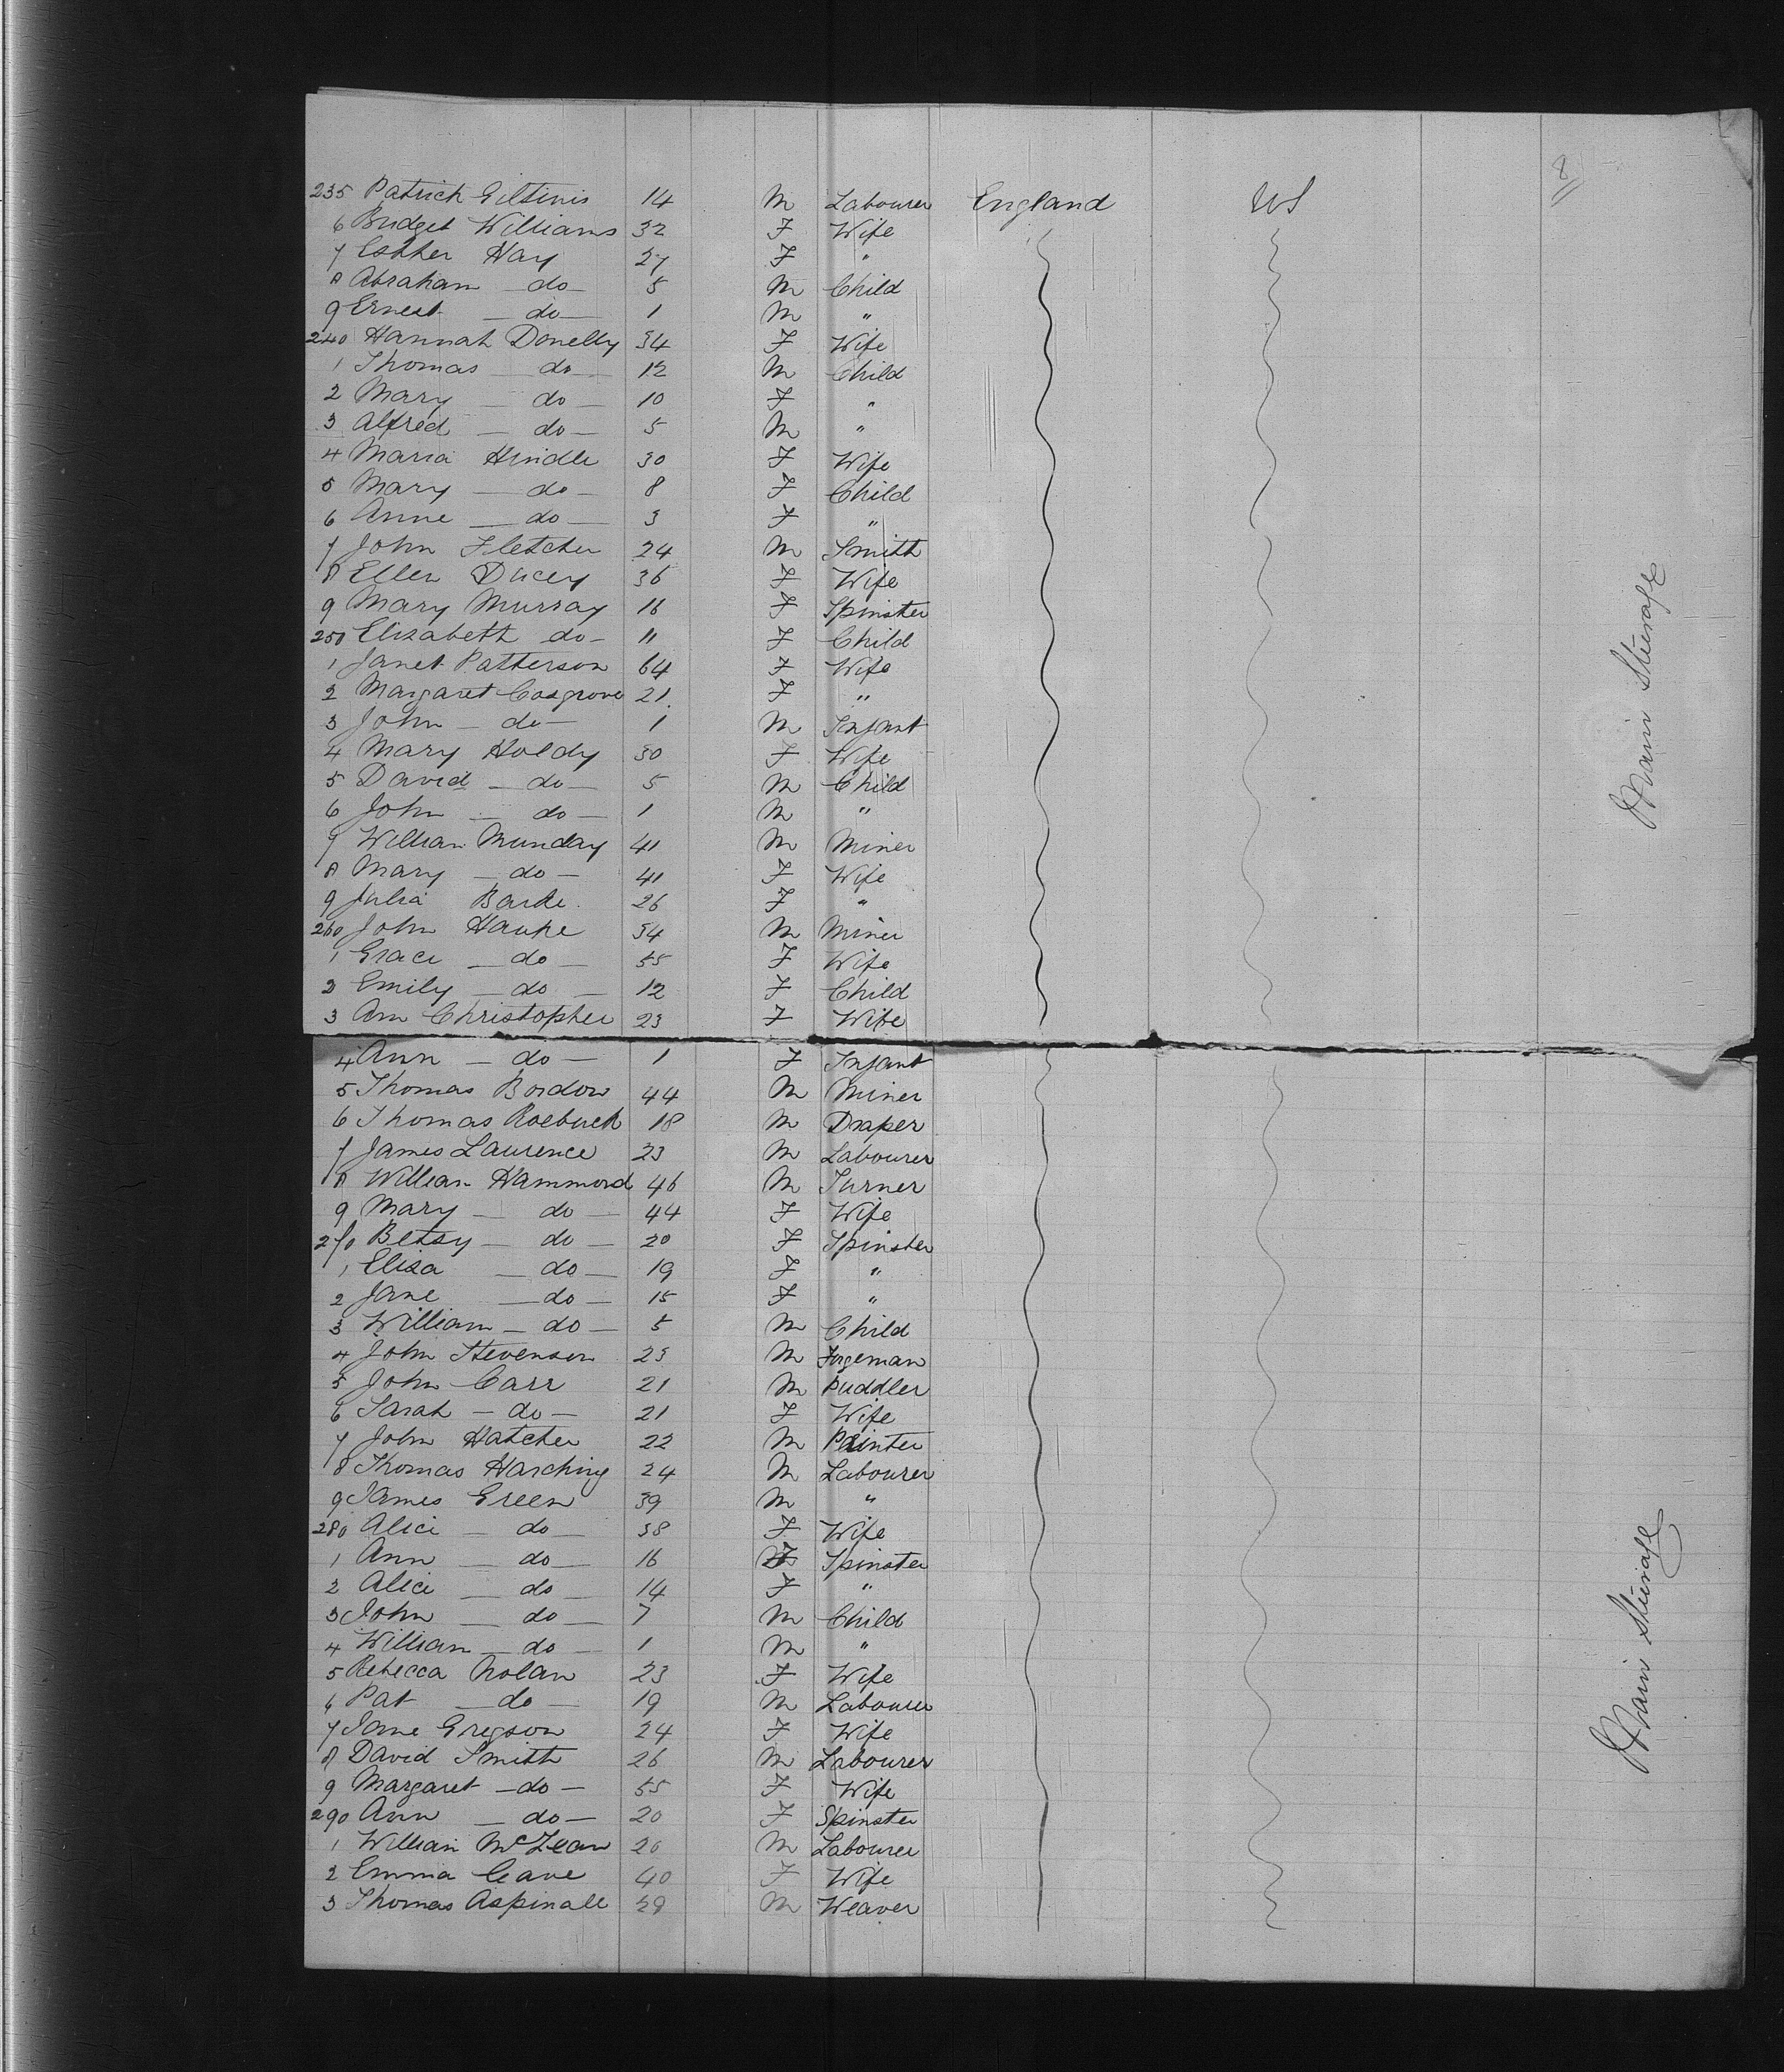 8
235 Patrick Giltinis 14 M Labourer England US
6 Bridget Williams 32 F Wife
7 Esther Hay 27 F "
8 Abraham — do — 5 M Child
9 Ernest — do — 1 M "
240 Hannah Donelly 34 F Wife
1 Thomas — do — 12 M Child
2 Mary — do — 10 F "
3 Alfred — do — 5 M "
4 Maria Hindle 30 F Wife
5 Mary — do — 8 F Child
6 Anne — do — 3 F "
7 John Fletcher 24 M Smith
8 Ellen Ducey 36 F Wife
9 Mary Murray 16 F Spinster
250 Elizabeth do — 11 F Child
1 Janet Patterson 64 F Wife
2 Margaret Cosgrove 21 F "
3 John — do — 1 M Infant
4 Mary Holdy 30 F Wife
5 David — do — 5 M Child
6 John — do — 1 M "
7 William Munday 41 M Miner
8 Mary — do — 41 F Wife
9 Julia Barke 26 F "
260 John Hauke 54 M Miner
1 Grace — do — 55 F Wife
2 Emily — do — 12 F Child
3 Ann Christopher 23 F Wife
4 Ann — do — 1 F Infant
5 Thomas Bordow 44 M Miner
6 Thomas Roebuck 18 M Draper
7 James Laurence 23 M Labourer
8 William Hammond 46 M Turner
9 Mary — do — 44 F Wife
270 Betsy — do — 20 F Spinster
1 Eliza — do — 19 F "
2 Jane — do — 15 F "
3 William — do — 5 M Child
4 John Stevenson 23 M Forgeman
5 John Carr 21 M Puddler
6 Sarah — do — 21 F Wife
7 John Hatcher 22 M Painter
8 Thomas Harching 24 M Labourer
9 James Green 39 M "
280 Alice — do — 38 F Wife
1 Ann — do — 16 F Spinster
2 Alice — do — 14 F "
3 John — do — 7 M Child
4 William — do — 1 M "
5 Rebecca Nolan 23 F Wife
6 Pat — do — 19 M Labourer
7 Jane Gregson 24 F Wife
8 David Smith 26 M Labourer
9 Margaret — do — 55 F Wife
290 Ann — do — 20 F Spinster
1 William McLean 26 M Labourer
2 Emma Cave 40 F Wife
3 Thomas Aspinall 29 M Weaver
Main Steerage
Main Steerage